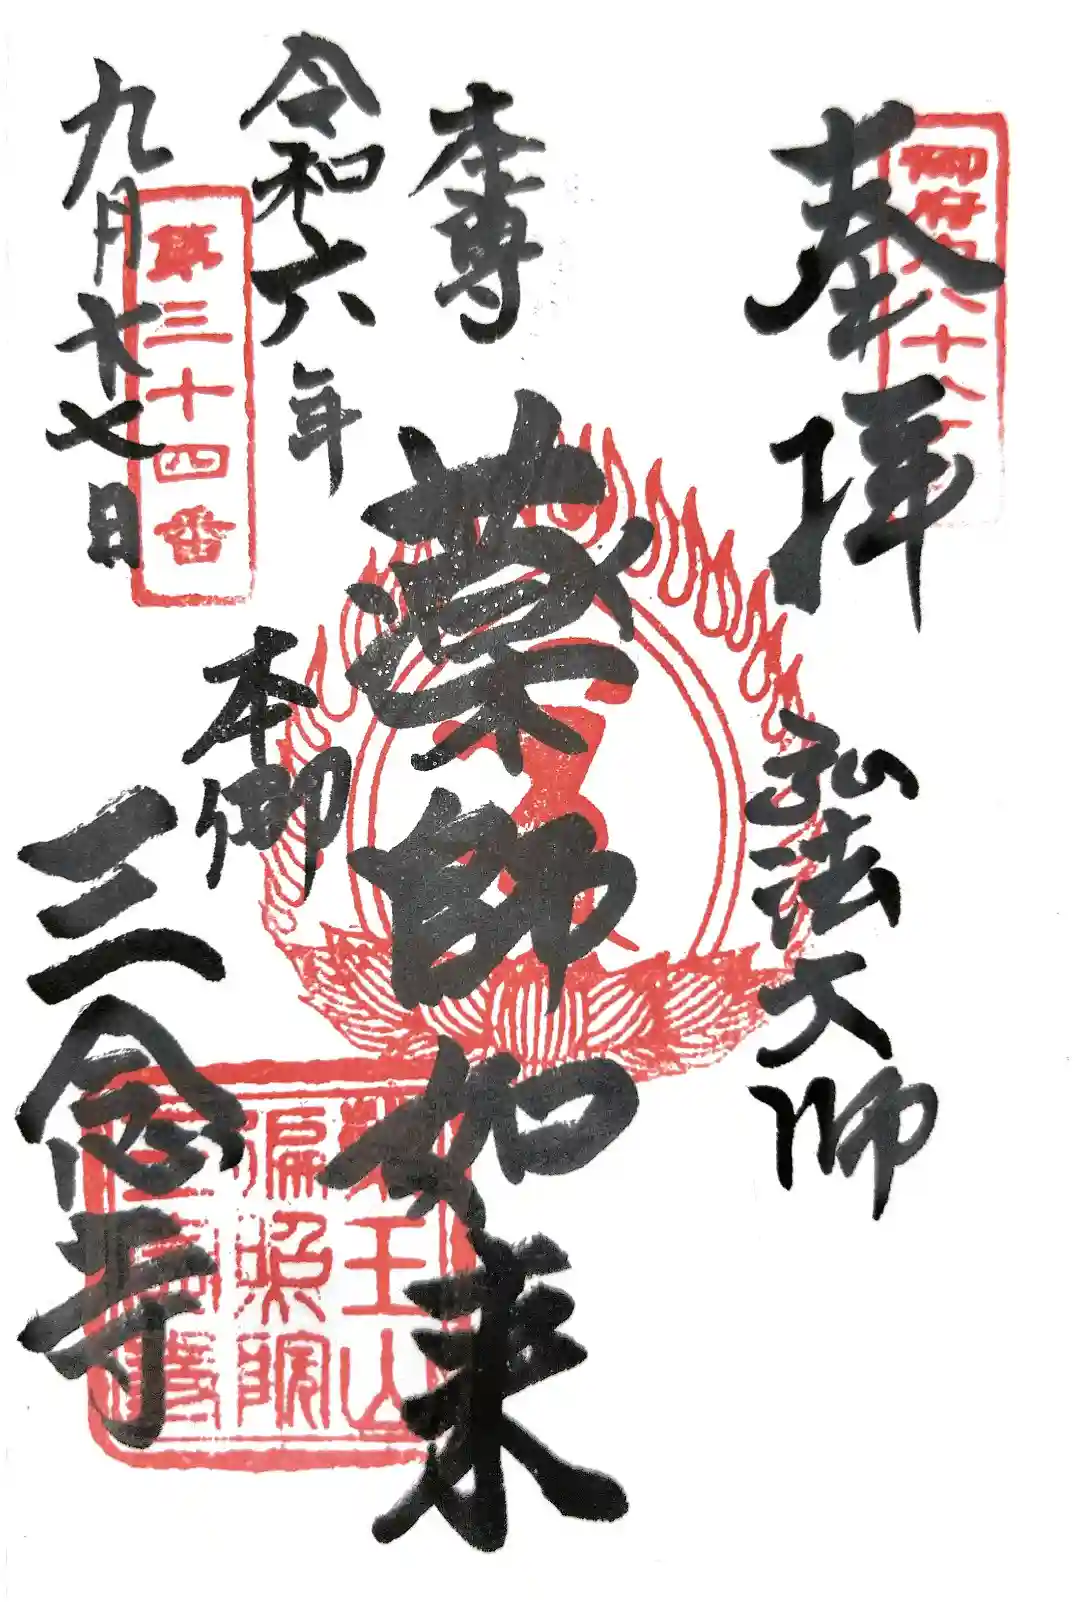 奉拝
弘法大師
本尊
薬師如来
令和六年
九月廿七日
本郷
三念寺
御府内八十八
第三十四番
薬王山
遍照院
三念寺